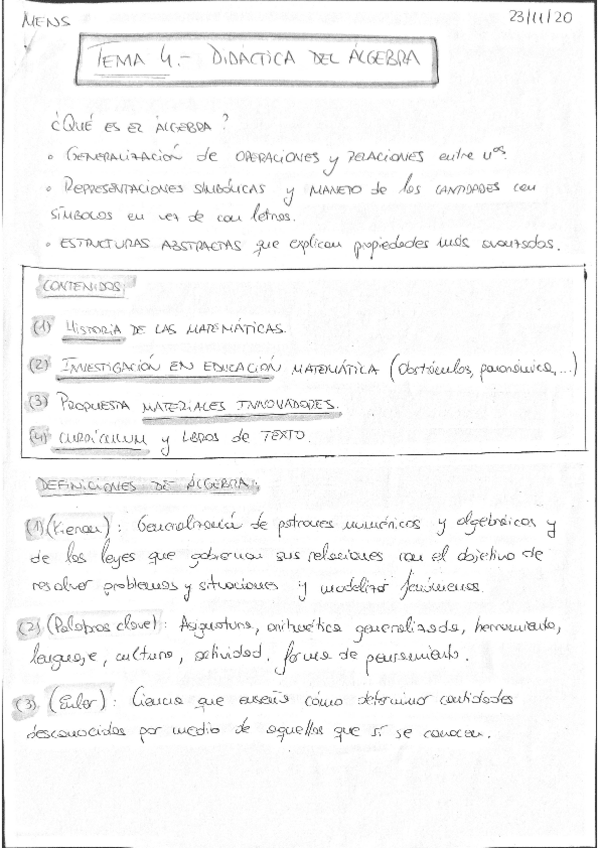 MENS
23/11/20
TEMA 4.- DIDÁCTICA DEL ÁLGEBRA
¿QUÉ ES EL ÁLGEBRA?
• GENERALIZACIÓN de OPERACIONES y RELACIONES entre nos.
• REPRESENTACIONES SIMBÓLICAS y MANEJO de las CANTIDADES con
SÍMBOLOS en vez de con letras.
• ESTRUCTURAS ABSTRACTAS que explican propiedades más avanzadas.
CONTENIDOS:
(1) HISTORIA DE LAS MATEMÁTICAS.
(2) INVESTIGACIÓN EN EDUCACIÓN MATEMÁTICA (Obstáculos, panorámica,...)
(3) PROPUESTA MATERIALES INNOVADORES.
(4) CURRÍCULUM y LIBROS de TEXTO.
DEFINICIONES DE ÁLGEBRA:
(1) (Kieran): Generalización de patrones numéricos y algebraicos y
de las leyes que gobiernan sus relaciones con el objetivo de
resolver problemas y situaciones y modelizar fenómenos.
(2) (Palabras clave): Asignatura, aritmética generalizada, herramienta,
lenguaje, cultura, actividad, forma de pensamiento.
(3) (Euler): Ciencia que enseña cómo determinar cantidades
desconocidas por medio de aquellas que sí se conocen.